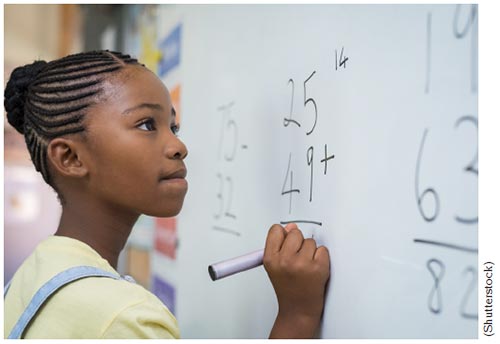 75 -
32
25 14
49 +
19
63
82
(Shutterstock)